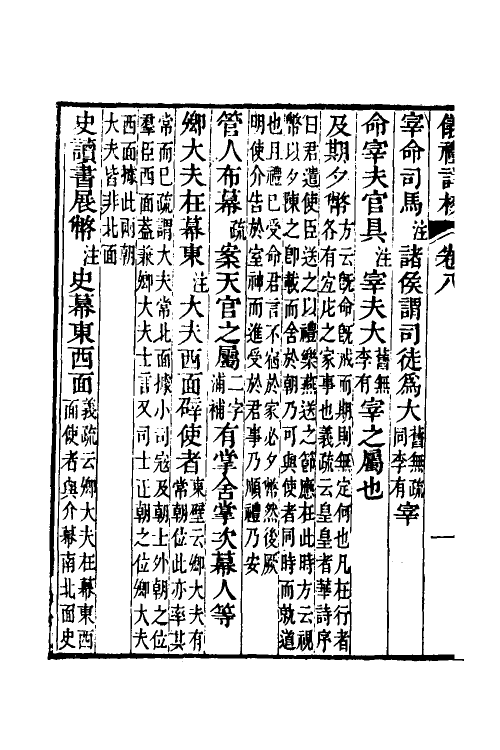 儀禮詳校 卷八 一
宰命司馬 注 諸侯謂司徒爲大 舊無疏同李有 宰
命宰夫官具 注 宰夫大 舊無李有 宰之屬也
及期夕幣 方云旣命旣戒而期則無定何也凡在行者各有宜庀之家事也義疏云皇皇者華詩序
曰君遣使臣送之以禮樂燕送之節應在此時方云視幣以夕陳之卽載而舍於朝乃可與使者同時而就道
也且禮已受命君言不宿於家必夕幣然後厥明使介告於室神而進受於君事乃順禮乃安
管人布幕 疏 案天官之屬 二字浦補 有掌舍掌次幕人等
卿大夫在幕東 注 大夫西面辟使者 東壁云卿大夫有常朝位此亦率其
常而已疏謂大夫常北面據小司寇及朝士外朝之位羣臣西面蓋兼卿大夫士言又司士正朝之位卿大夫
西面據此兩朝大夫皆非北面
史讀書展幣 注 史幕東西面 義疏云卿大夫在幕東西面使者與介幕南北面史